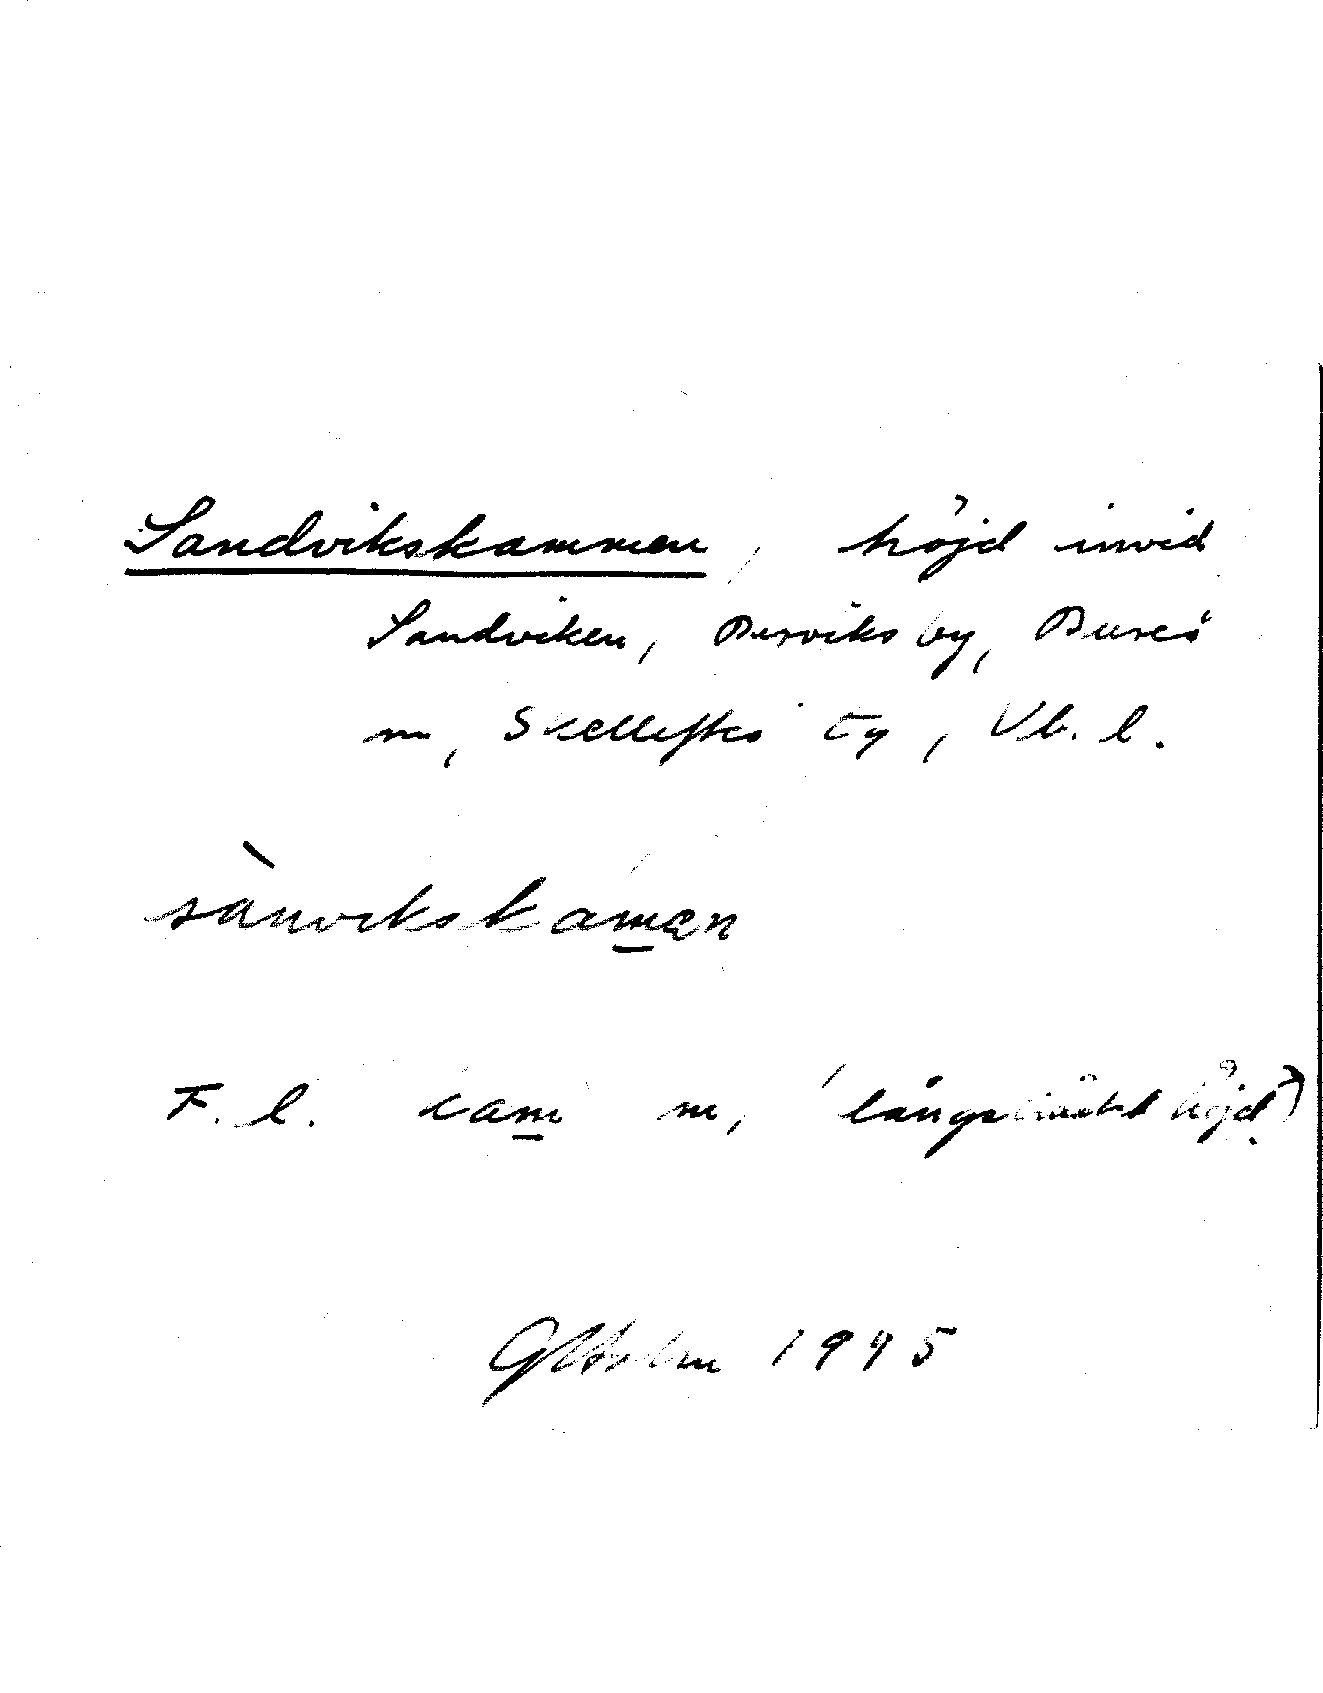 Sandvikskammen, höjd invid
Sandviken, Burviks by, Bureå
sn, Skellefteå tg, Vb. l.
sànvikskam̲ən
F. l. kam̲ m, 'långsträckt höjd'.
G Holm 1945